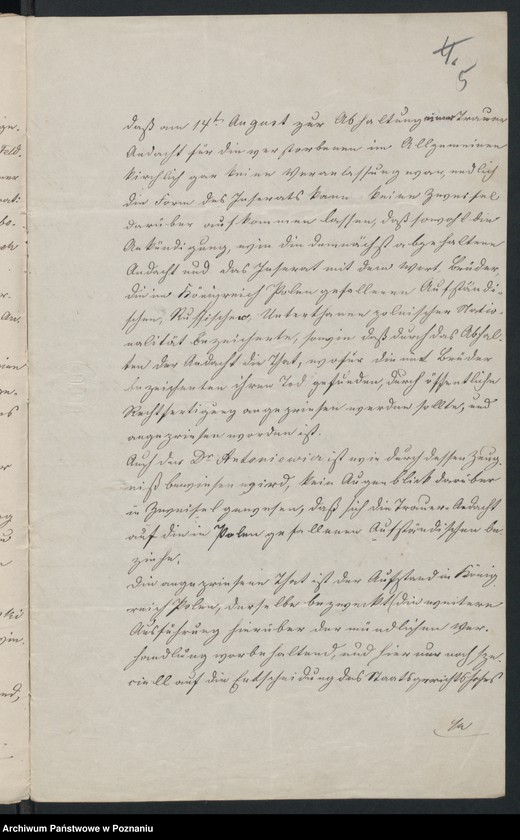 4.
5
daß am 14t. August zur Abhaltung einer Trauer
Andacht für die verstorbenen im Allgemeinen
kirchlich gar keine Veranlassung war, endlich
die Form des Inserats kann keinen Zweifel
darüber aufkommen lassen, daß sowohl die
Ankündigung, wie die demnächst abgehaltene
Andacht und das Inserat mit dem Wort, Brüder,
die im Königreich Polen gefallenen Aufständi-
schen, Russischer Unterthanen polnischer Natio-
nalität bezeichnete, sowie daß durch das Abhal-
ten der Andacht die That, wofür die mit Brüder
bezeichneten ihren Tod gefunden, durch öffentliche
Rechtfertigung angepriesen werden sollte, und
angepriesen worden ist.
Auch der Dr Antoniewicz ist wie durch dessen Zeug-
niß bewiesen wird, kein Augenblick darüber
in Zweifel gewesen, daß sich die Trauer-Andacht
auf die in Polen gefallenen Aufständischen be
ziehe.
Die angepriesene That ist der Aufstand in König
reich Polen, derselbe bezweckt die weitere
Ausführung hierüber der mündlichen Ver-
handlung vorbehaltend, und hier nur noch spe-
ciell auf die Entscheidung des Staatsgerichtshofes
Archiwum Państwowe w Poznaniu